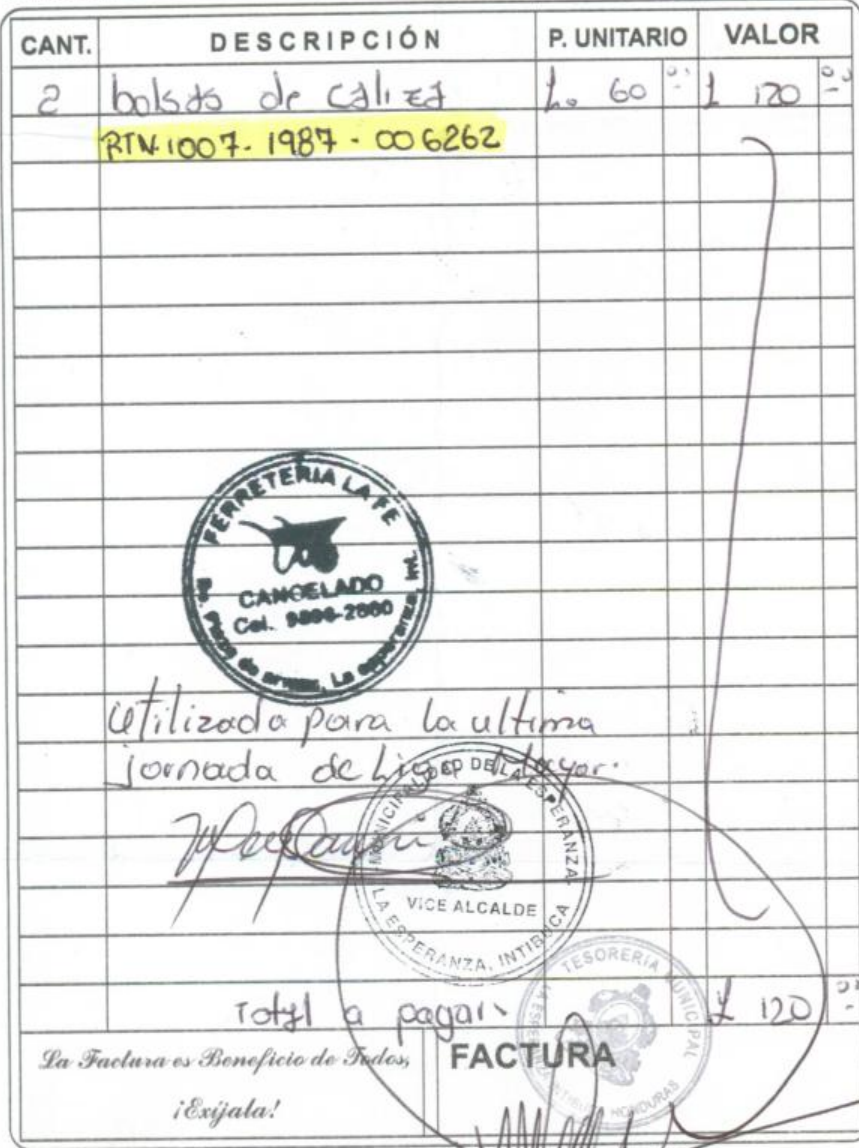 CANT. DESCRIPCIÓN P. UNITARIO VALOR
2 bolsas de caliza L. 60 00 L 120 00
RTN. 1007. 1987 - 006262
FERRETERIA LA FE
CANCELADO
Cel.
de armas, La esperanza, Int.
Utilizada para la ultima
jornada de Liga Mayor.
MUNICIPALIDAD DE LA ESPERANZA
VICE ALCALDE
LA ESPERANZA, INTIBUCA
TESORERIA MUNICIPAL
HONDURAS
Total a pagar L 120
La Factura es Beneficio de Todos,
¡Exíjala!
FACTURA